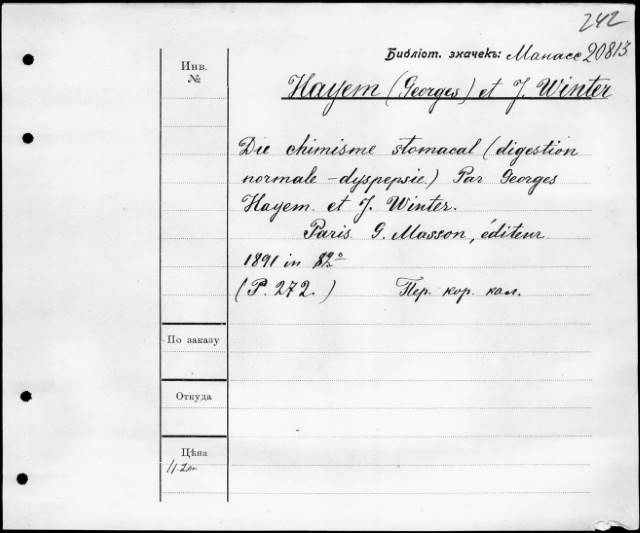 242
Библіот. значекъ: Манассе 20813
Инв.
№
Hayem (Georges) et J. Winter
Die chimisme stomacal (digestion
normale - dyspepsie.) Par Georges
Hayem. et J. Winter.
Paris. G. Masson, éditeur
1891 in 8º
(P. 272.) Пер. кор. кал.
По заказу
Откуда
Цѣна